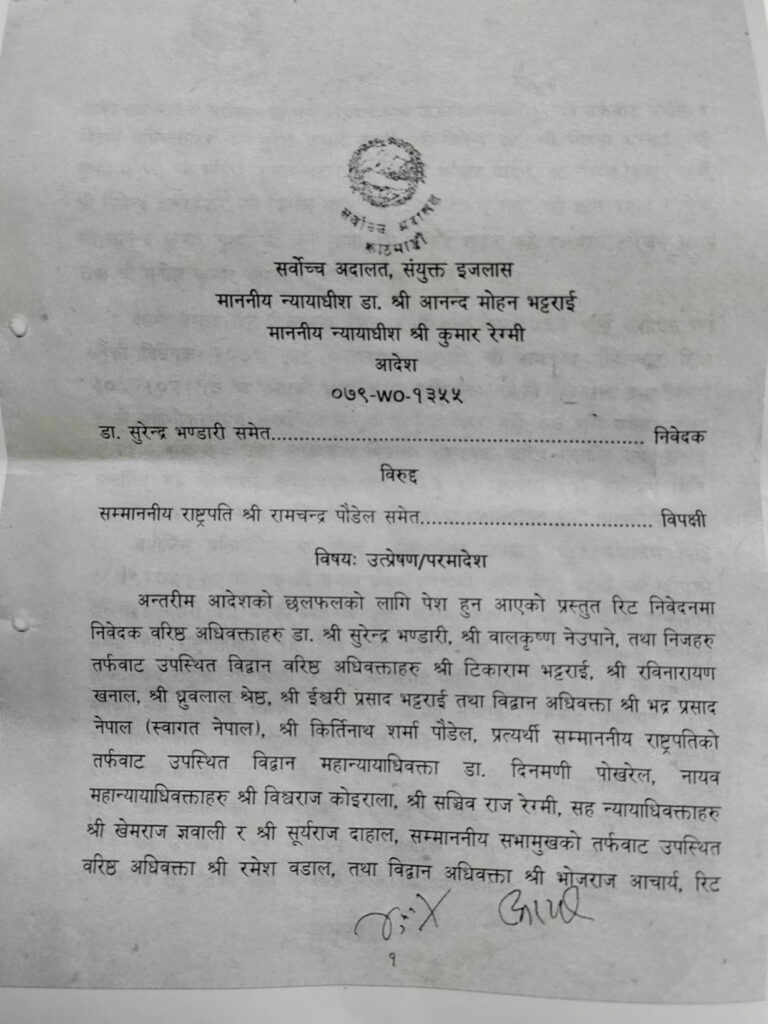 सर्वोच्च अदालत
काठमाडौं
सर्वोच्च अदालत, संयुक्त इजलास
माननीय न्यायाधीश डा. श्री आनन्द मोहन भट्टराई
माननीय न्यायाधीश श्री कुमार रेग्मी
आदेश
०७९-WO-१३५५
डा. सुरेन्द्र भण्डारी समेत.................................................................. निवेदक
विरुद्ध
सम्माननीय राष्ट्रपति श्री रामचन्द्र पौडेल समेत......................................... विपक्षी
विषयः उत्प्रेषण/परमादेश
अन्तरीम आदेशको छलफलको लागि पेश हुन आएको प्रस्तुत रिट निवेदनमा
निवेदक वरिष्ठ अधिवक्ताहरु डा. श्री सुरेन्द्र भण्डारी, श्री वालकृष्ण नेउपाने, तथा निजहरु
तर्फवाट उपस्थित विद्वान वरिष्ठ अधिवक्ताहरु श्री टिकाराम भट्टराई, श्री रविनारायण
खनाल, श्री ध्रुवलाल श्रेष्ठ, श्री ईश्वरी प्रसाद भट्टराई तथा विद्वान अधिवक्ता श्री भद्र प्रसाद
नेपाल (स्वागत नेपाल), श्री किर्तिनाथ शर्मा पौडेल, प्रत्यर्थी सम्माननीय राष्ट्रपतिको
तर्फवाट उपस्थित विद्वान महान्यायाधिवक्ता डा. दिनमणी पोखरेल, नायव
महान्यायाधिवक्ताहरु श्री विश्वराज कोइराला, श्री सञ्चिव राज रेग्मी, सह न्यायाधिवक्ताहरु
श्री खेमराज ज्ञवाली र श्री सूर्यराज दाहाल, सम्माननीय सभामुखको तर्फवाट उपस्थित
वरिष्ठ अधिवक्ता श्री रमेश वडाल, तथा विद्वान अधिवक्ता श्री भोजराज आचार्य, रिट
१